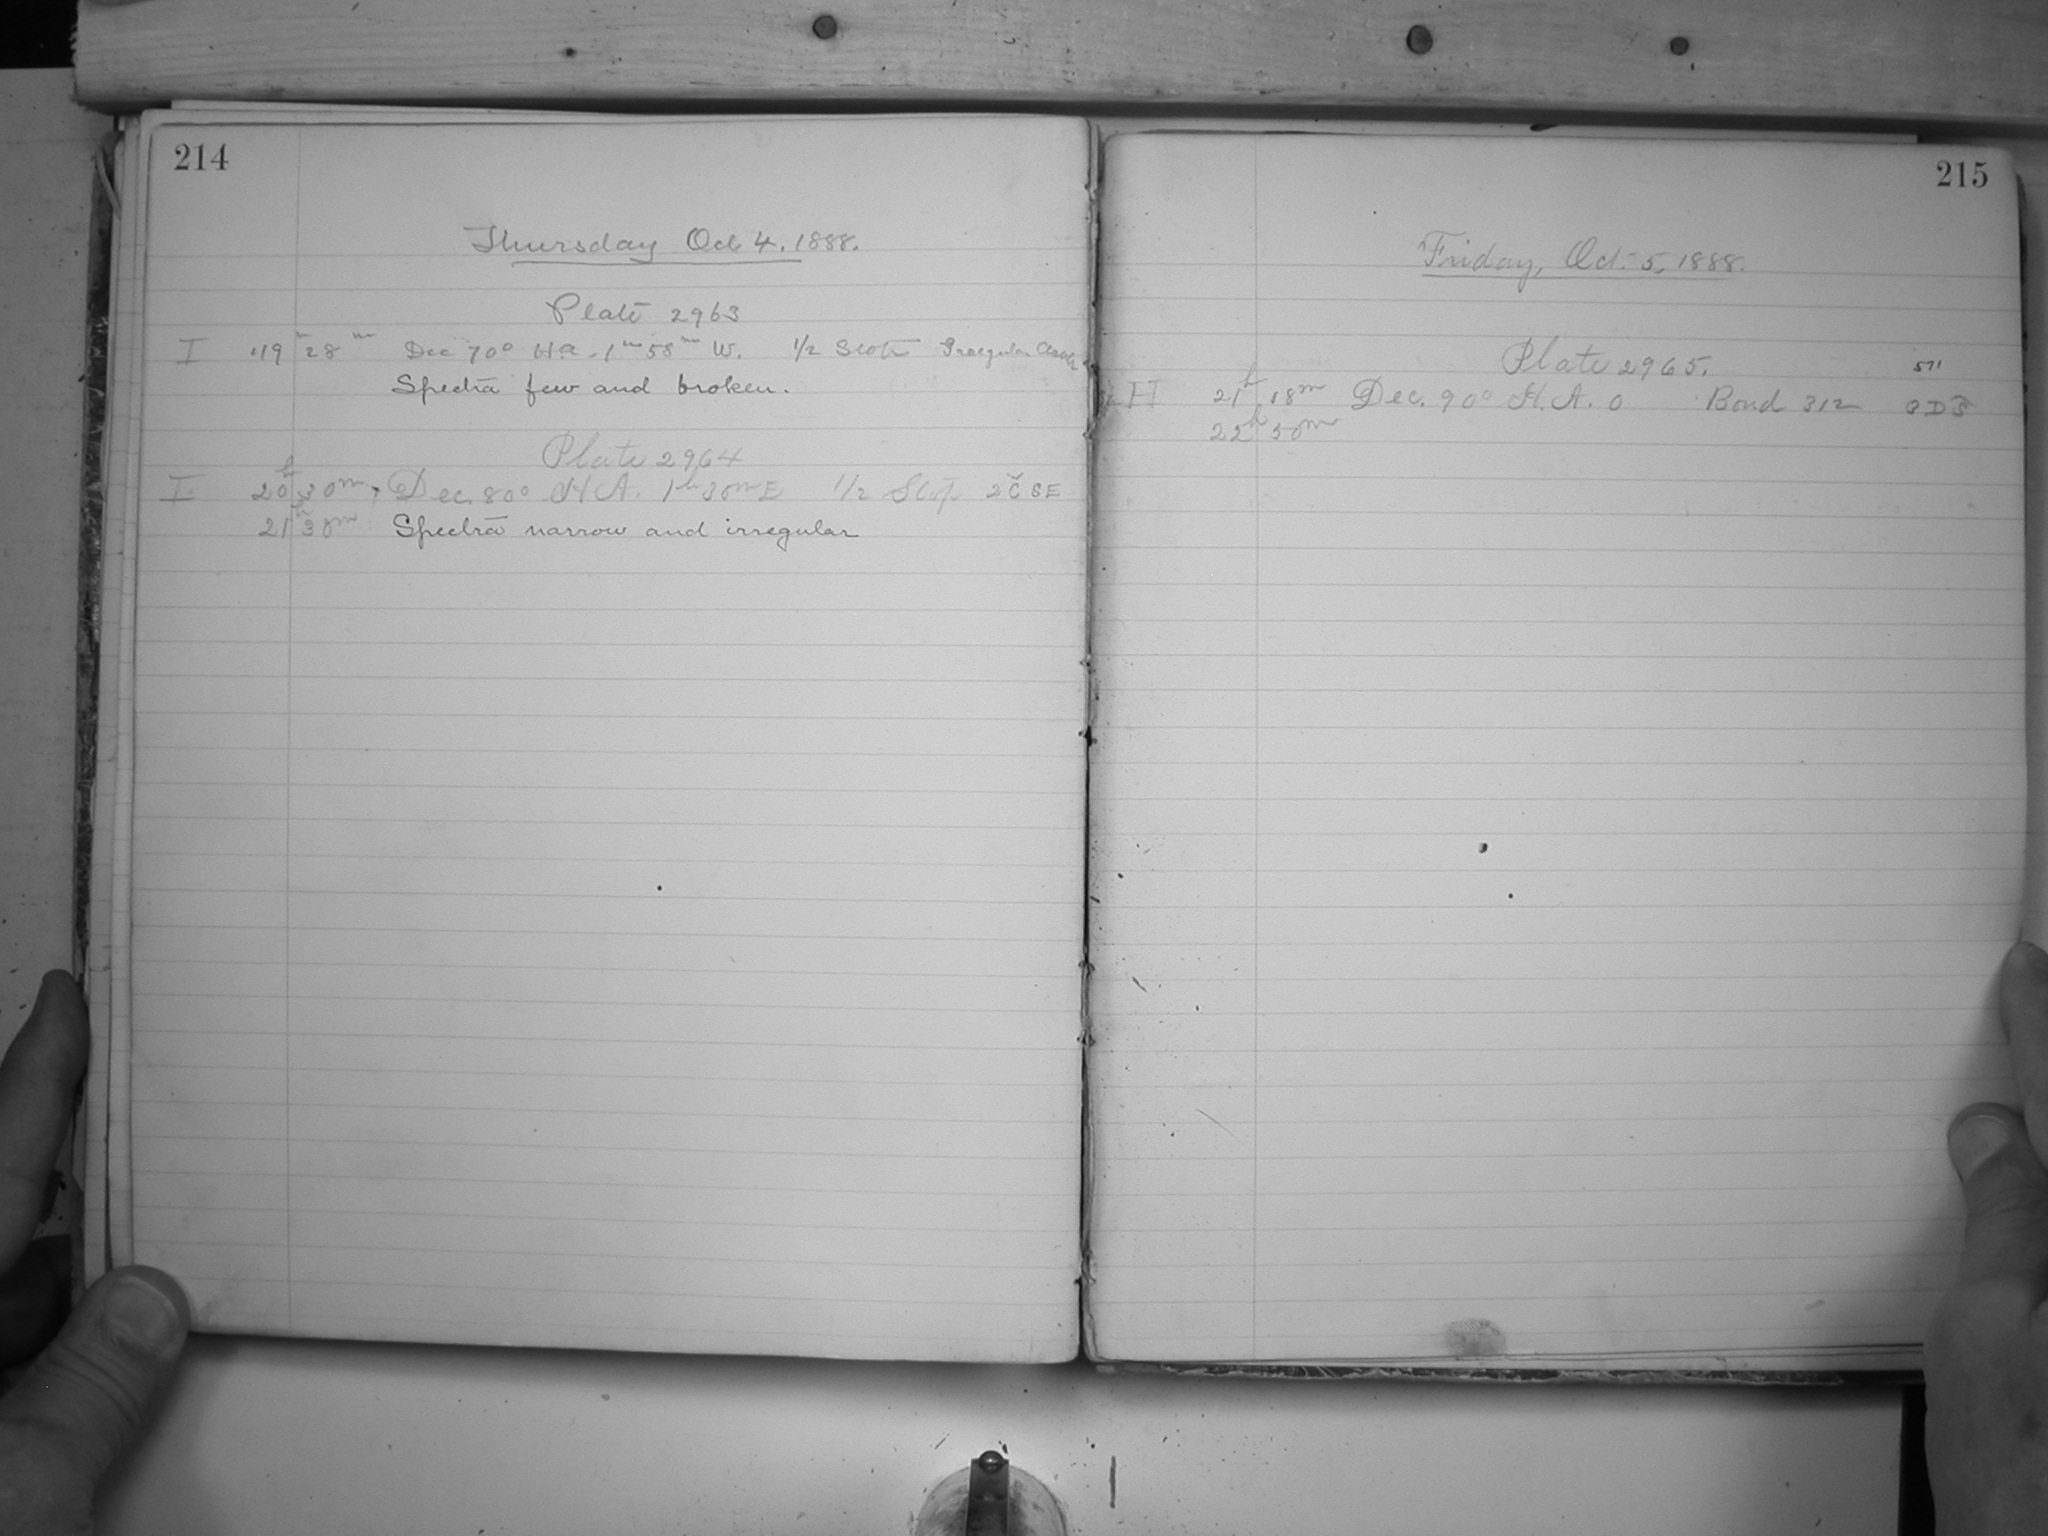 214
Thursday Oct 4. 1888.
Plate 2963
I 19 28 m Dec 70° Ha. 1 m 58 m W. 1/2 Irregular
Spectra few and broken.
Plate 2964
I 20 h 30 m, Dec. 80° H.A. 1 h 30 m E 1/2 Stop
21 h 30 m Spectra narrow and irregular
215
Friday, Oct. 5, 1888.
Plate 2965.
II 21 h 18 m Dec. 90° H.A. 0 Bond 312
22 h 50 m